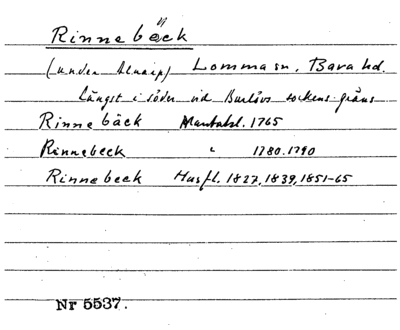 Rinnebäck
(under Alnarp) Lomma sn. Bara hd.
Längst i söder vid Burlövs sockens gräns
Rinnebäck Mantalsl. 1765
Rinnebeck " 1780. 1790
Rinnebeck Husfl. 1827, 1839, 1851-65
Nr 5537.